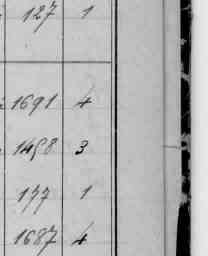 127 1
1691 4
1458 3
177 1
1687 4